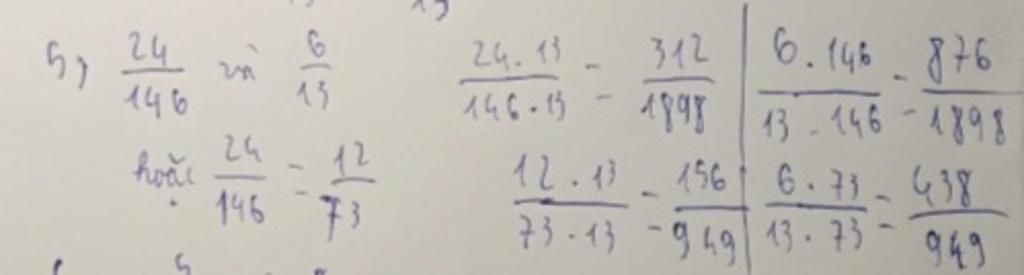 5) 24/146 và 6/13 24.13/146.13 = 312/1898 | 6.146/13.146 = 876/1898
hoặc 24/146 = 12/73 12.13/73.13 = 156/949 | 6.73/13.73 = 438/949